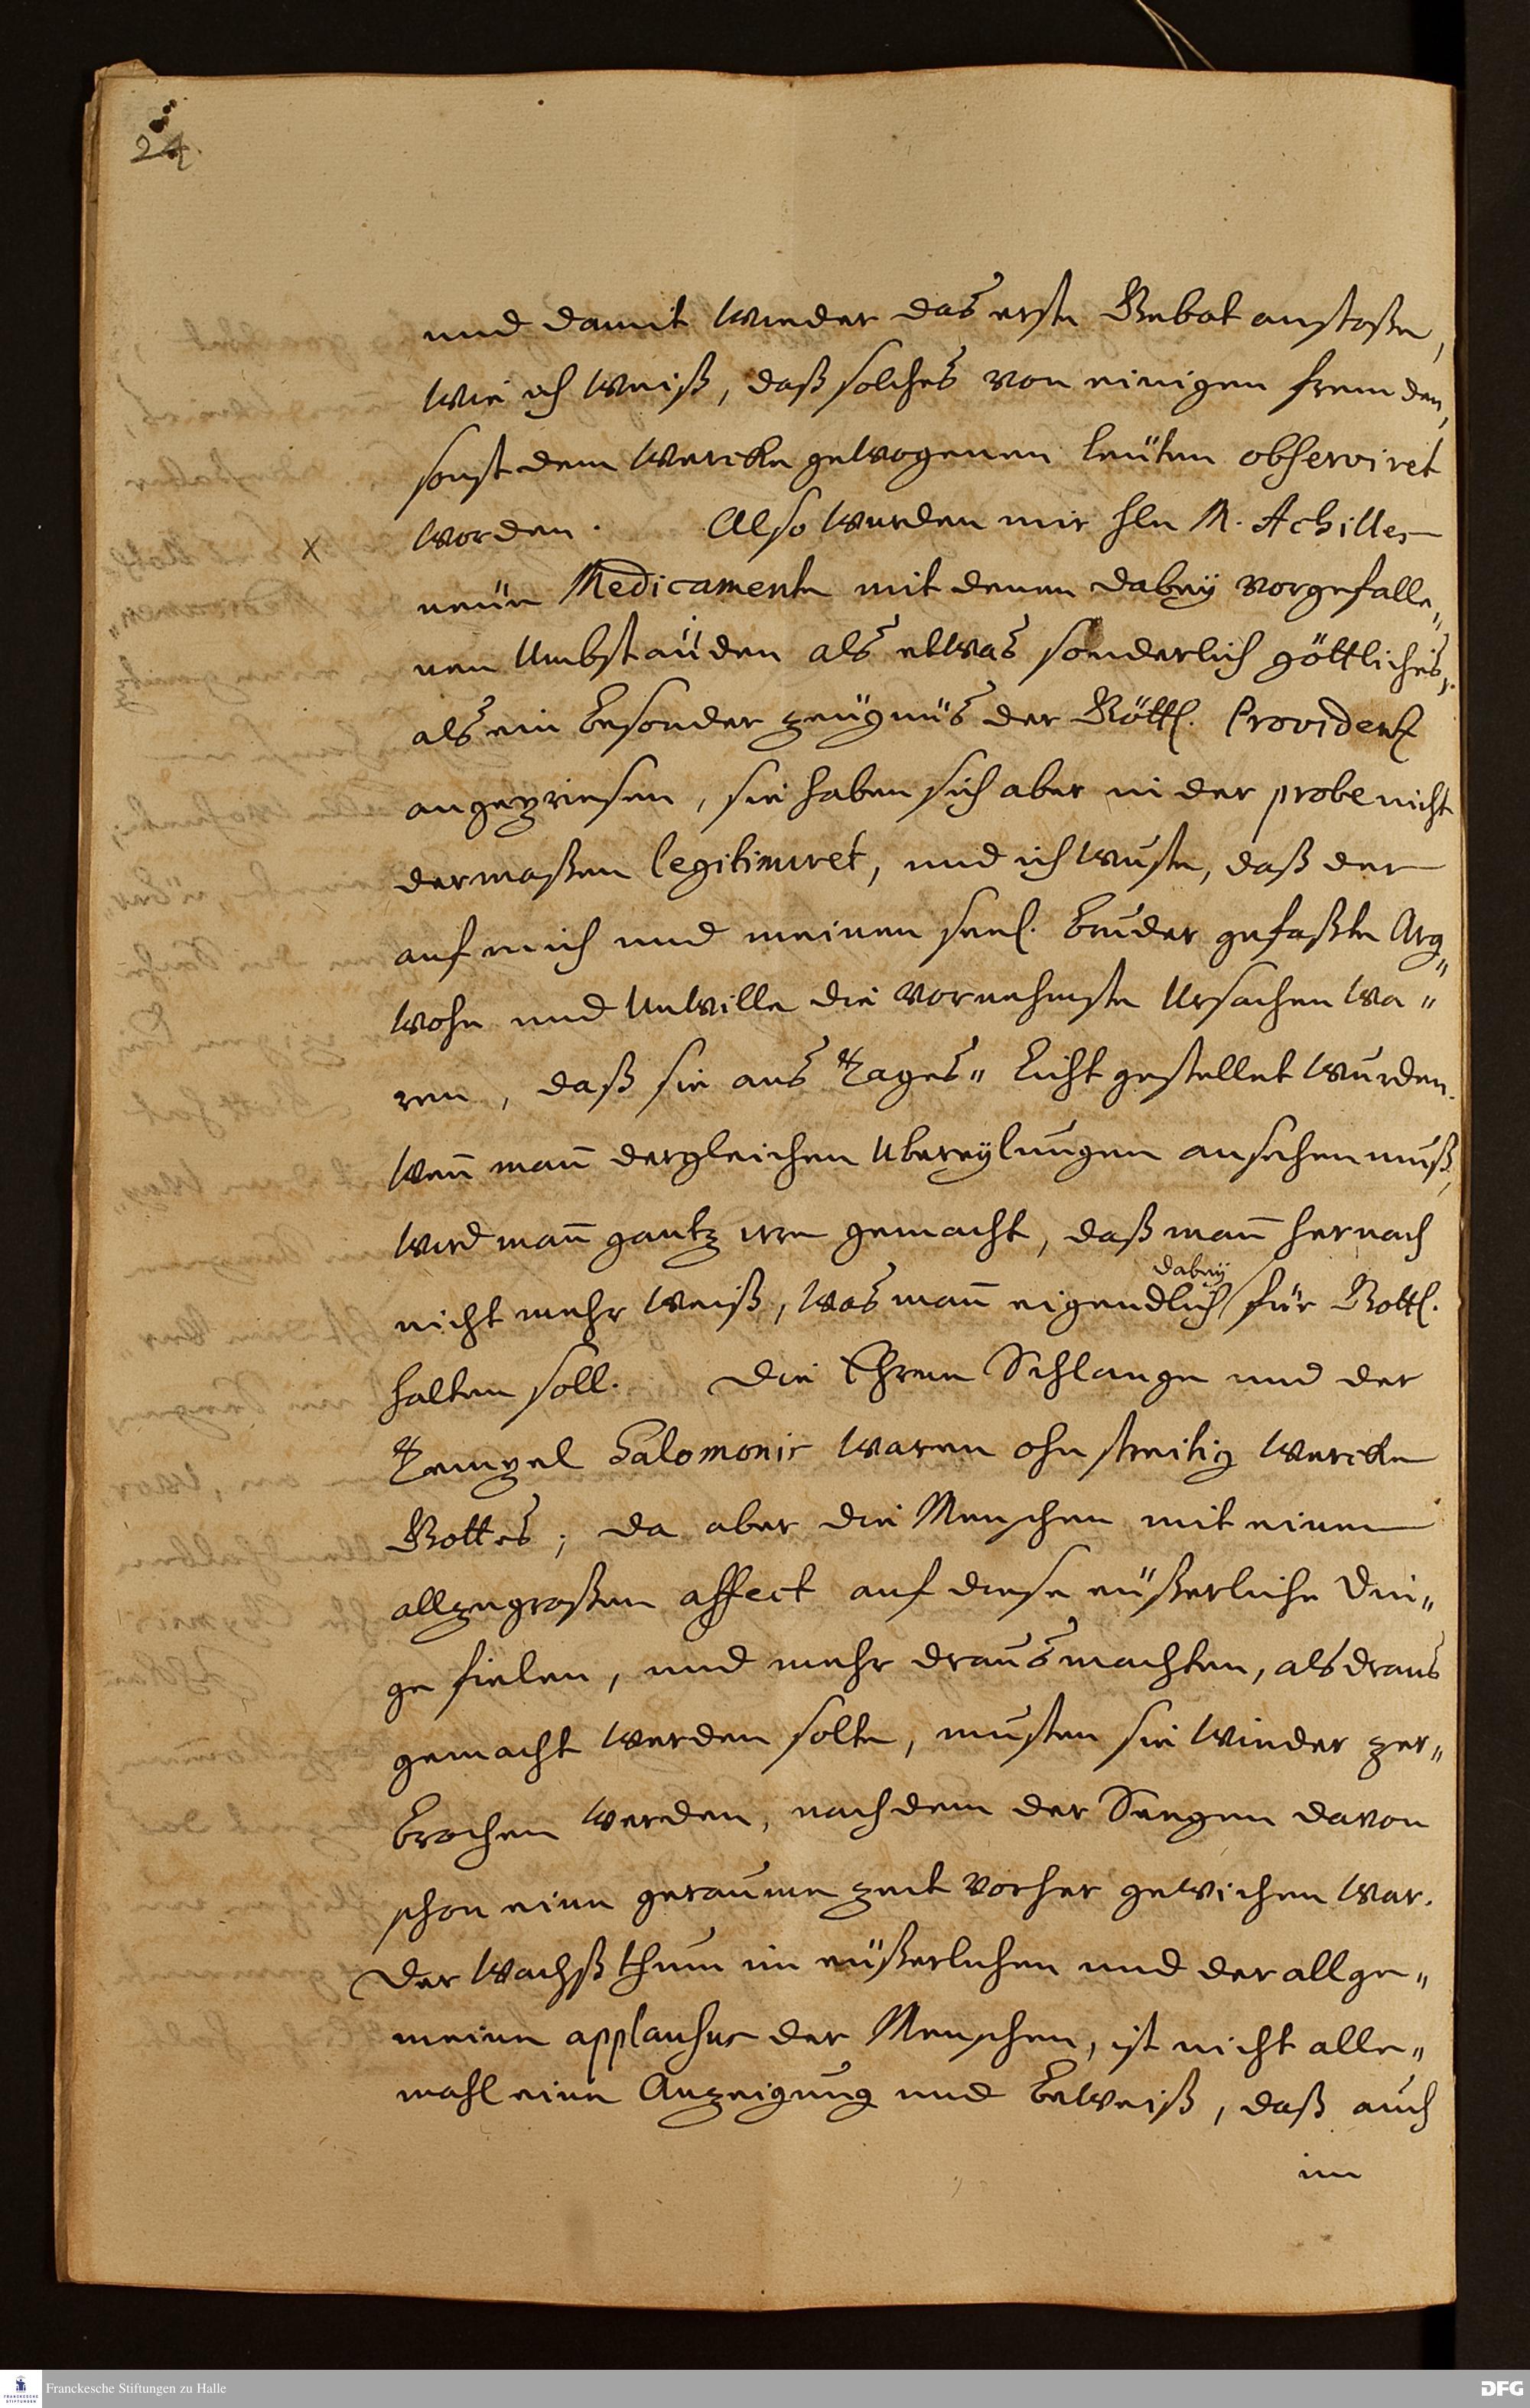 24.
und damit wieder das erste Gebot anstoßen,
wie ich weiß, daß solches von einigen fremden,
sonst dem wercke gewogenen leüten observiret
worden. Also wurden mir H̅n M. Achilles
x
neüe Medicamente mit denen dabeÿ vorgefalle„
nen Umbständen als etwas sonderlich göttliches,
als ein besonder zeügnüs der Göttl. Providentz
angepriesen, sie haben sich aber in der probe nicht
dermaßen legitimiret, und ich wuste, daß der
auf mich und meinen seel. bruder gefaßte Arg„
wohn und Unwille die vornehmste Ursachen wa„
ren, daß sie ans Tages„ licht gestellet wurden.
Wen̅ man̅ dergleichen Ubereÿlungen ansehen muß,
wird man̅ gantz irre gemacht, daß man̅ hernach
dabeÿ
nicht mehr weiß, was man̅ eigendlich für Göttl.
halten soll. Die Ehrne Schlange und der
Tempel Salomonis waren ohnstreitig wercke
Gottes; da aber die Menschen mit einem
allzugroßen affect auf diese eüßerliche Din„
ge fielen, und mehr draus machten, als draus
gemacht werden solte, musten sie wieder zer„
brochen werden, nachdem der Seegen davon
schon eine geraume zeit vorher gewichen war.
Der Wachßthum im eüßerlichen und der allge„
meine applausus der Menschen, ist nicht alle„
mahl eine Anzeigung und beweiß, daß auch
im
Franckesche Stiftungen zu Halle
DFG